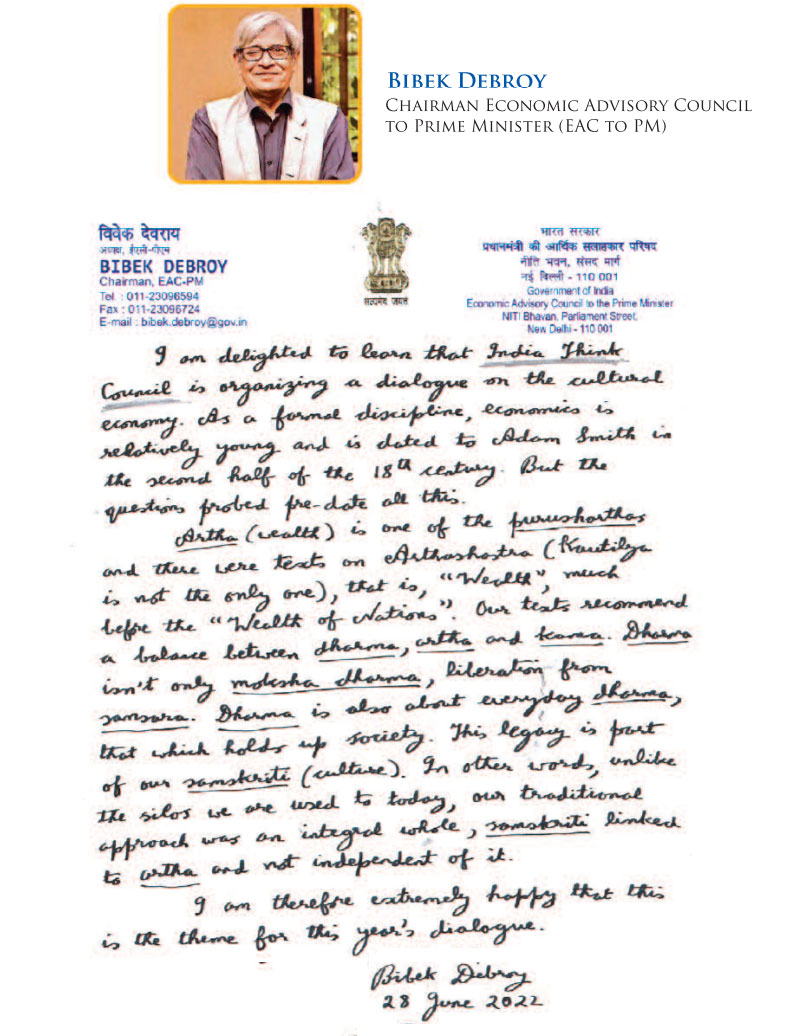 BIBEK DEBROY
CHAIRMAN ECONOMIC ADVISORY COUNCIL
TO PRIME MINISTER (EAC TO PM)
विवेक देवराय
अध्यक्ष, ईएसी-पीएम
BIBEK DEBROY
Chairman, EAC-PM
Tel. : 011-23096594
Fax : 011-23096724
E-mail : bibek.debroy@gov.in
सत्यमेव जयते
भारत सरकार
प्रधानमंत्री की आर्थिक सलाहकार परिषद
नीति भवन, संसद मार्ग
नई दिल्ली - 110 001
Government of India
Economic Advisory Council to the Prime Minister
NITI Bhavan, Parliament Street,
New Delhi - 110 001
I am delighted to learn that India Think
Council is organizing a dialogue on the cultural
economy. As a formal discipline, economics is
relatively young and is dated to Adam Smith in
the second half of the 18th century. But the
questions probed pre-date all this.
Artha (wealth) is one of the purusharthas
and there were texts on Arthashastra (Kautilya
is not the only one), that is, "Wealth", much
before the "Wealth of Nations". Our texts recommend
a balance between dharma, artha and kama. Dharma
isn't only moksha dharma, liberation from
samsara. Dharma is also about everyday dharma,
that which holds up society. This legacy is part
of our samskriti (culture). In other words, unlike
the silos we are used to today, our traditional
approach was an integral whole, samskriti linked
to artha and not independent of it.
I am therefore extremely happy that this
is the theme for this year's dialogue.
Bibek Debroy
28 June 2022